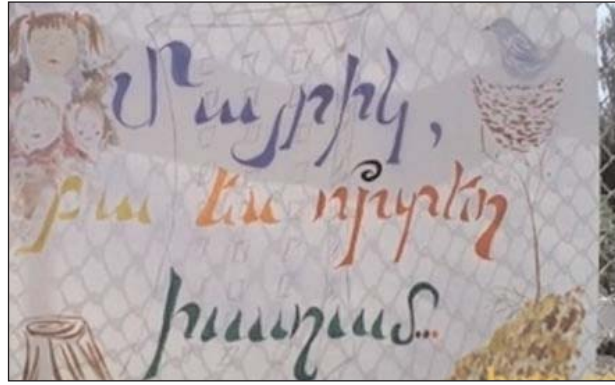 Մայրիկ,
բա ես որտե՞ղ
խաղամ...